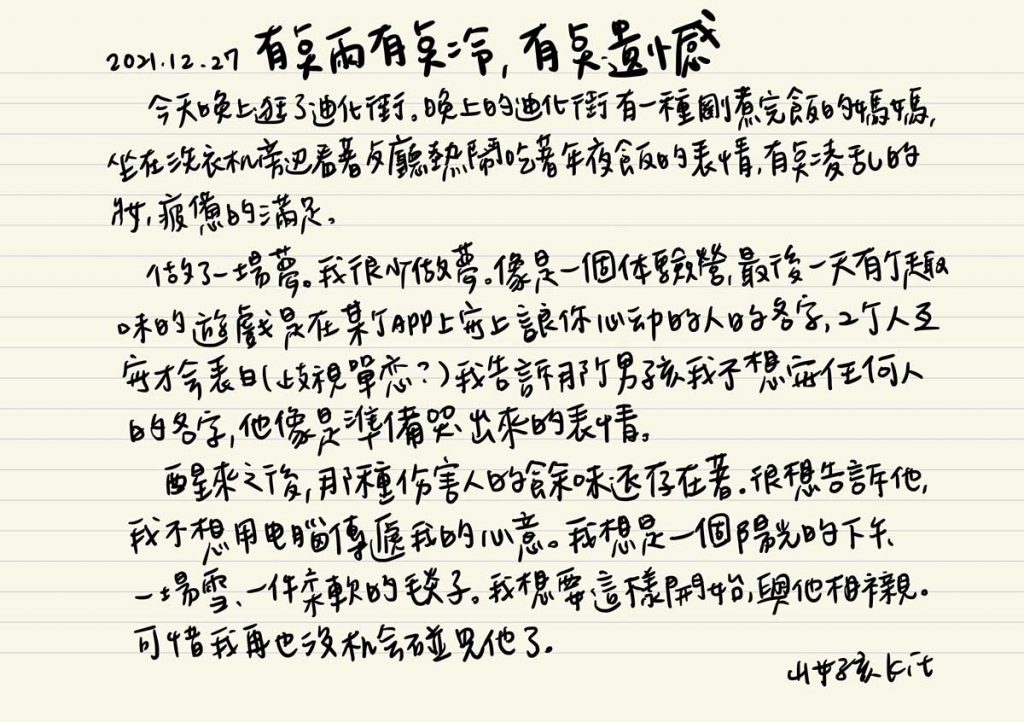 2021.12.27 有点雨有点冷，有点遺憾
今天晚上逛了迪化街。晚上的迪化街有一種剛煮完飯的媽媽，
坐在洗衣机旁边看著客廳熱鬧吃著年夜飯的表情，有点凌乱的
妝，疲憊的滿足。
做了一場夢。我很少做夢。像是一個体驗營，最後一天有个趣
味的遊戲是在某个APP上寫上讓你心动的人的名字，2个人互
寫才会表白（歧視單恋？）我告訴那个男孩我不想寫任何人
的名字，他像是準備哭出來的表情。
醒來之後，那種伤害人的餘味还存在著。很想告訴他，
我不想用电腦傳遞我的心意。我想是一個陽光的下午、
一場雪、一件柔軟的毯子。我想要這樣開始，與他相親。
可惜我再也沒机会碰見他了。
山女孩Kit